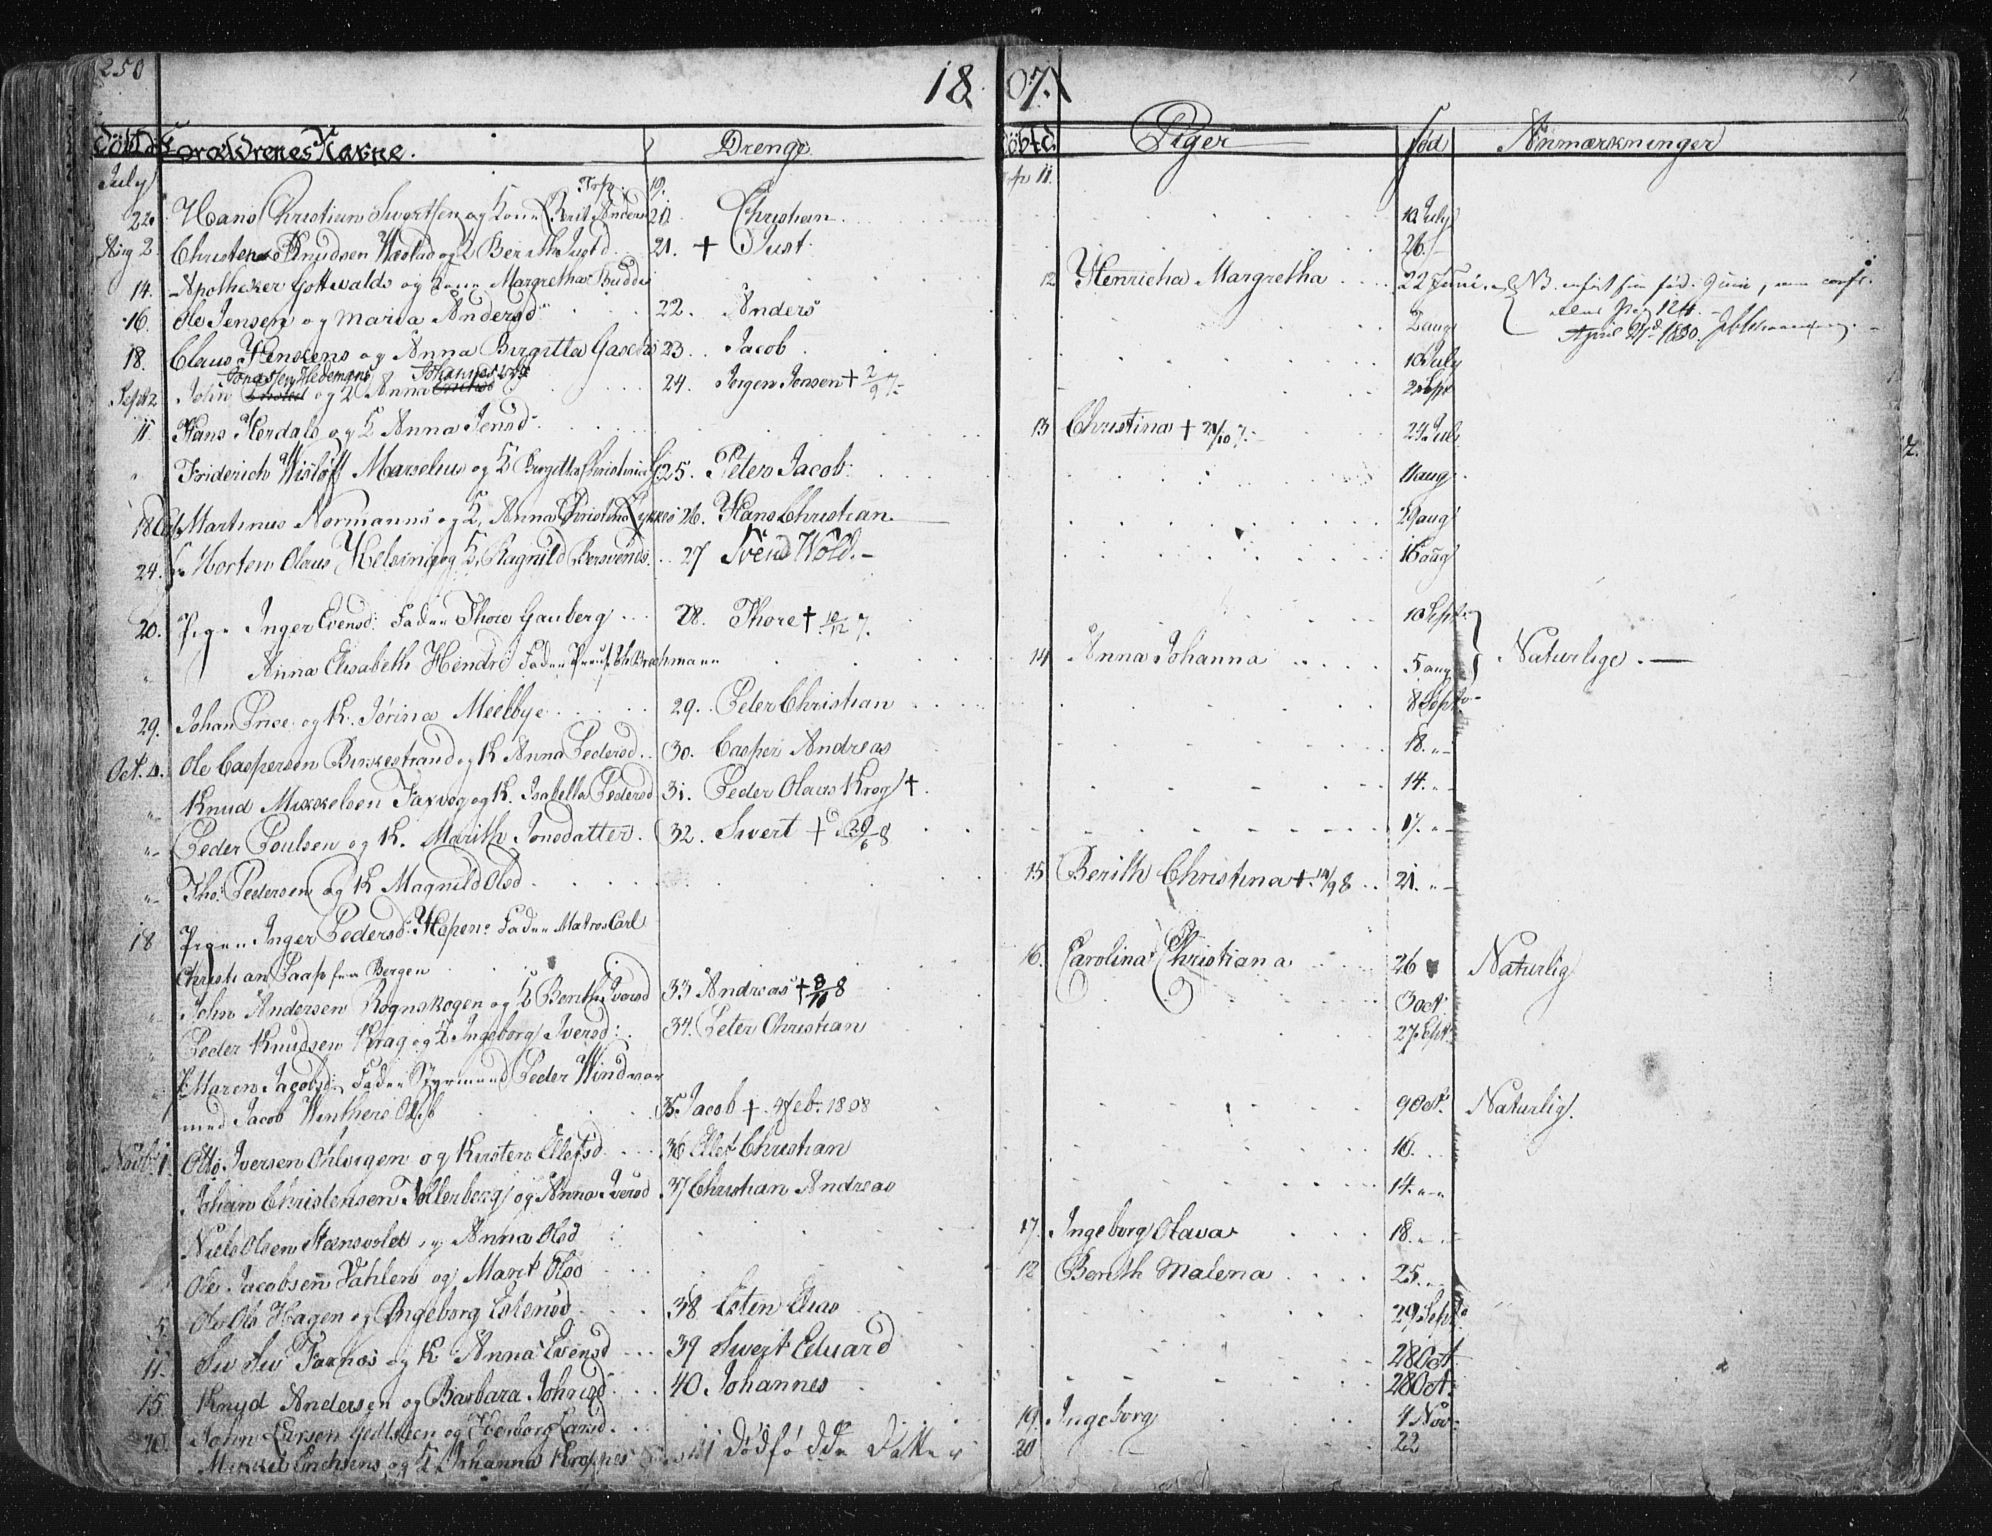 250 18 07.
Döbt d Forældrenes Navne. Drenge Döbt d. Piger Fød Anmærkninger
July Trsp. 19. Trsp 11.
22. Hans Christian Sivertsen og Kone Berit Anders 20. Christian 12 July
Aug 2 Christen Knudsen Wæstad og K Beritha Justd. 21. + Just. 26.
14. Apotheker Gottwalds og Kone Margretha Budde 12 Henricha Margretha 22 Juni NB. født Juni,
16. Ole Jensen og Maria Andersd 22. Anders 2 aug Pag 124.
April 1830.
18. Claus Henssens og Anna Birgitta Gasch 23. Jacob 10 July
Sept 2 John og K Anna 24. Jørgen Jensen + 2/9 7. 2 Sept
11. Hans Herdals og K Anna Jensd. 13 Christina + 21/10 7. 24 July
" Friderich Wisløff Marselius og K Birgitta Christina 25. Peter Jacob 11 aug
18 Martinus Normanns og K. Anna Christina Lykkes 26. Hans Christian 29 aug
24. Morten Olaus Helsing og K. Ragnild Bersvends. 27 Svend Wold. 16 aug
20. Pige Inger Evensd. Fader Thore Gauberg 28. Thore + 10/12 7. 10 Sept.
" Anna Elisabeth Hendri Fader Brochmann 14 Anna Johanna 5 aug Naturlige.
29. Johan Price og K. Jørina Meelbye 29. Peter Christian 8 Sept.
Oct. 4. Ole Caspersen Birkestrand og K Anna Pedersd. 30. Casper Andreas 18. "
" Knud Mikkelsen Faxvog og K. Isabella Pedersd 31. Peder Olaus Krog + 14. "
" Peder Poulsen og K. Marith Jonsdatter. 32. Sivert + 29/6 8 17. "
" Tho: Pedersen og K Magnild Olsd 15 Berith Christina + 14/9 8 21. "
18 Pigen Inger Pedersd: Hopen: Fader Matros Carl
Christian Saap fra Bergen 16. Carolina Christiana 26 Naturlig
" John Andersen Rognskogen og K Berith Iversd 33 Andreas + 8/10 8 3 Oct.
" Peder Knudsen Krag og K Ingeborg Iversd: 34. Peter Christian 27 Sept.
" P Maren Jacobsd. Fader Styrmand Peder Wind
med Jacob Winthers 35. Jacob + 4 Feb. 1808 9 Oct. Naturlig.
Novb. 1. Otto Iversen Ohlvigen og Kirsten Ellefsd. 36 Ellef Christian 16.
Johan Christensen Tollerberg og Anna Iversd 37 Christian Andreas 14. "
Niels Olsen Stensvolet og Anna Olsd 17. Ingeborg Olava 18.
Ole Jacobsen Dahlen og Marit Olsd 18 Berith Malena 25. "
5. Ole Ols Hagen og Ingeborg Estensd 38 Esten Elias 29 Sept.
11. Siv Siv Faxnes og K Anna Evensd 39 Sivert Eduard 28 Oct.
15 Knud Andersen og Barbara Johnsd 40 Johannes 28 Oct.
20. John Larsen og Ingeborg Larsd. 19. Ingeborg 4 Nov.
Mikkel Erichsens og K Johanna Kroppes 41 Dødfødde 20 22